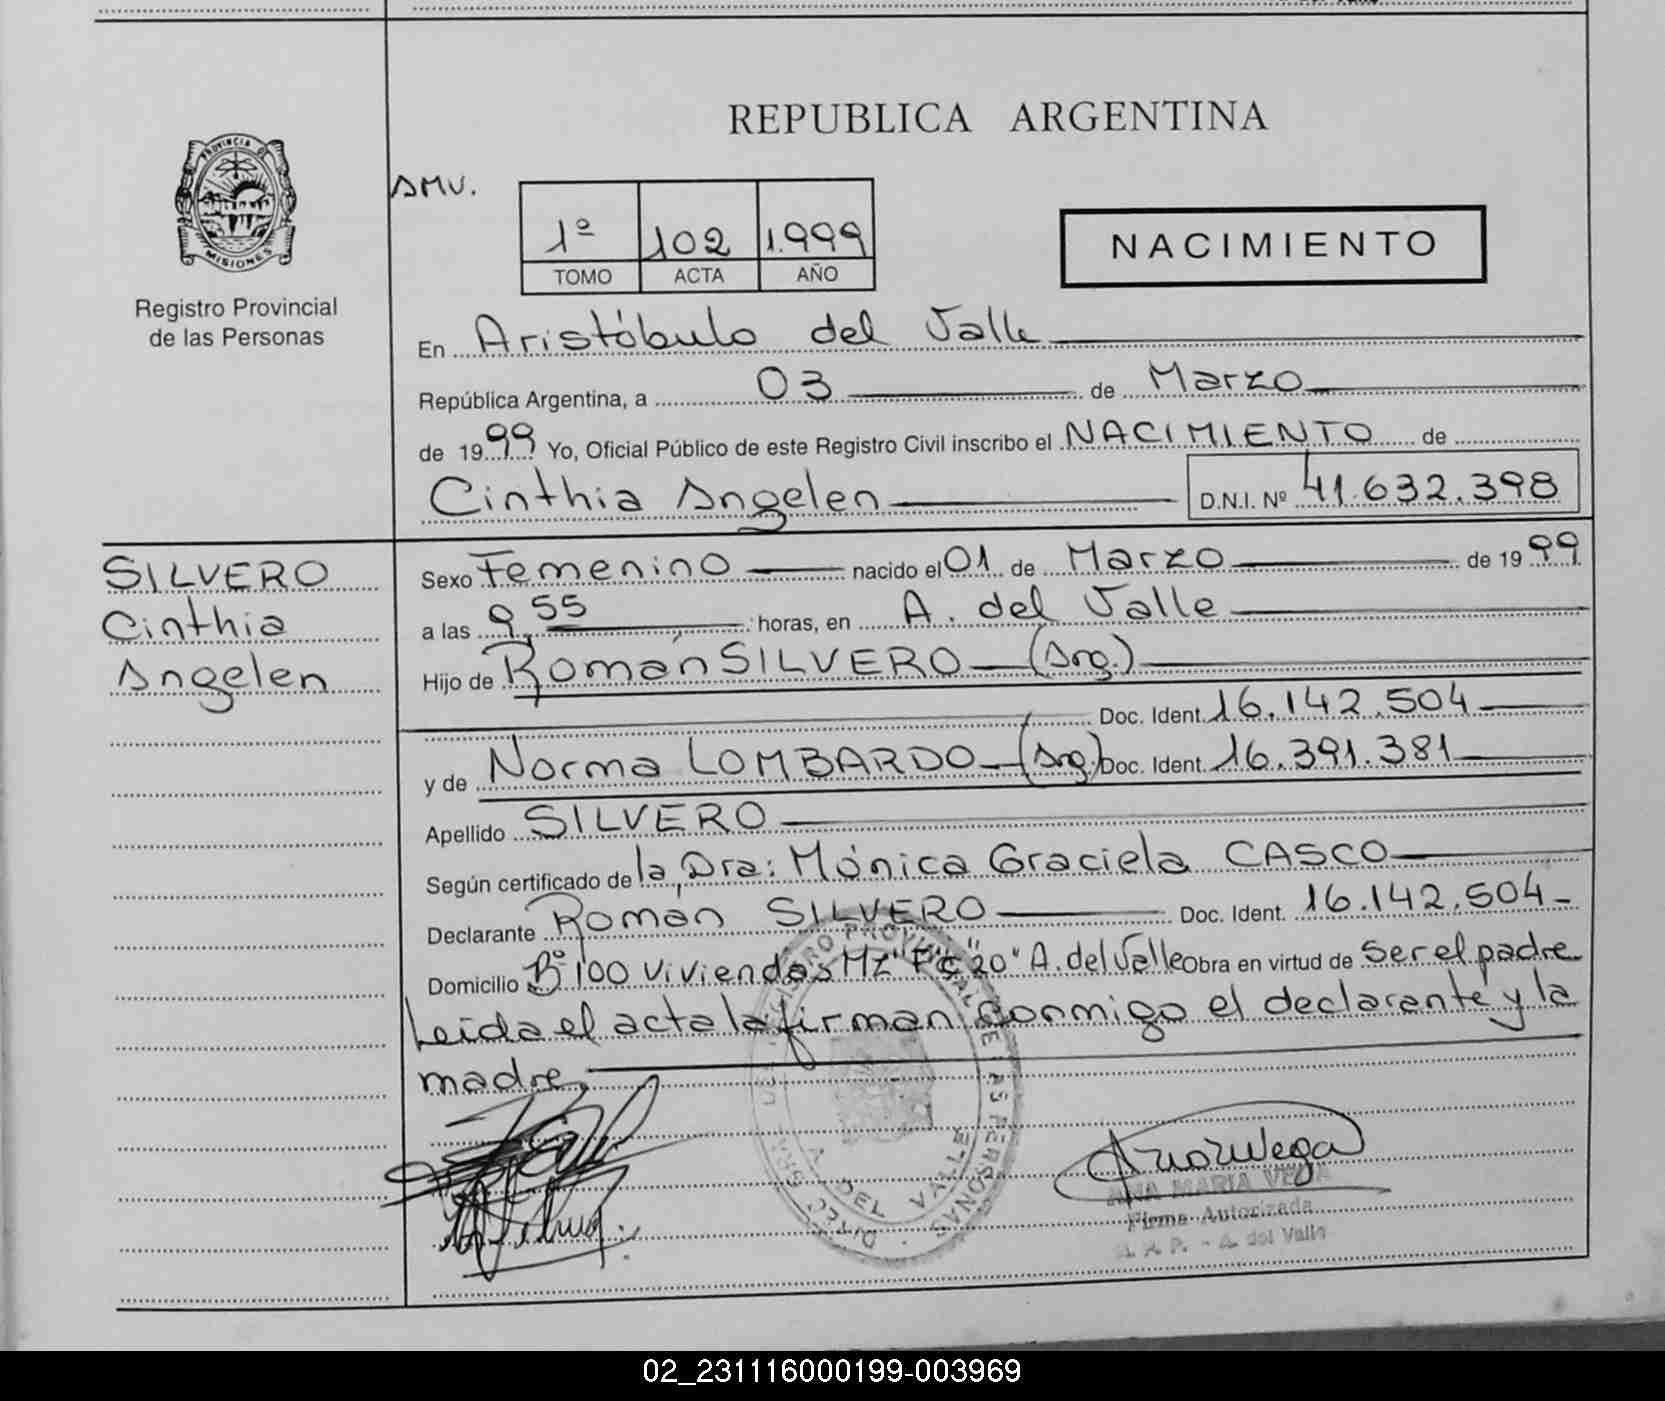 REPUBLICA ARGENTINA
PROVINCIA DE
MISIONES
Registro Provincial
de las Personas
AMV.
1º 102 1.999
TOMO ACTA AÑO
NACIMIENTO
En Aristóbulo del Valle
República Argentina, a 03 de Marzo
de 1999 Yo, Oficial Público de este Registro Civil inscribo el NACIMIENTO de
Cinthia Angelen D.N.I. Nº 41.632.398
SILVERO
Cinthia
Angelen
Sexo Femenino nacido el 01 de Marzo de 1999
a las 9,55 horas, en A. del Valle
Hijo de Román SILVERO (Arg.)
Doc. Ident. 16.142.504
y de Norma LOMBARDO (Arg.) Doc. Ident. 16.391.381
Apellido SILVERO
Según certificado de la Dra: Mónica Graciela CASCO
Declarante Román SILVERO Doc. Ident. 16.142.504
Domicilio Bº 100 Viviendas Mz "F" C "20" A. del Valle Obra en virtud de ser el padre
Leída el acta la firman conmigo el declarante y la
madre,
A. DEL VALLE
ANA MARIA VEGA
Firma Autorizada
A. del Valle
02_231116000199-003969